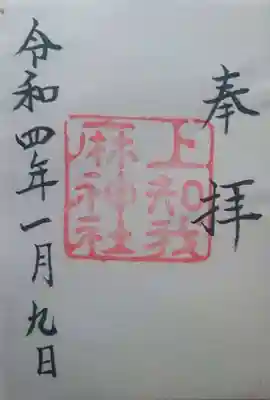 奉拝
上知我麻神社
令和四年一月九日